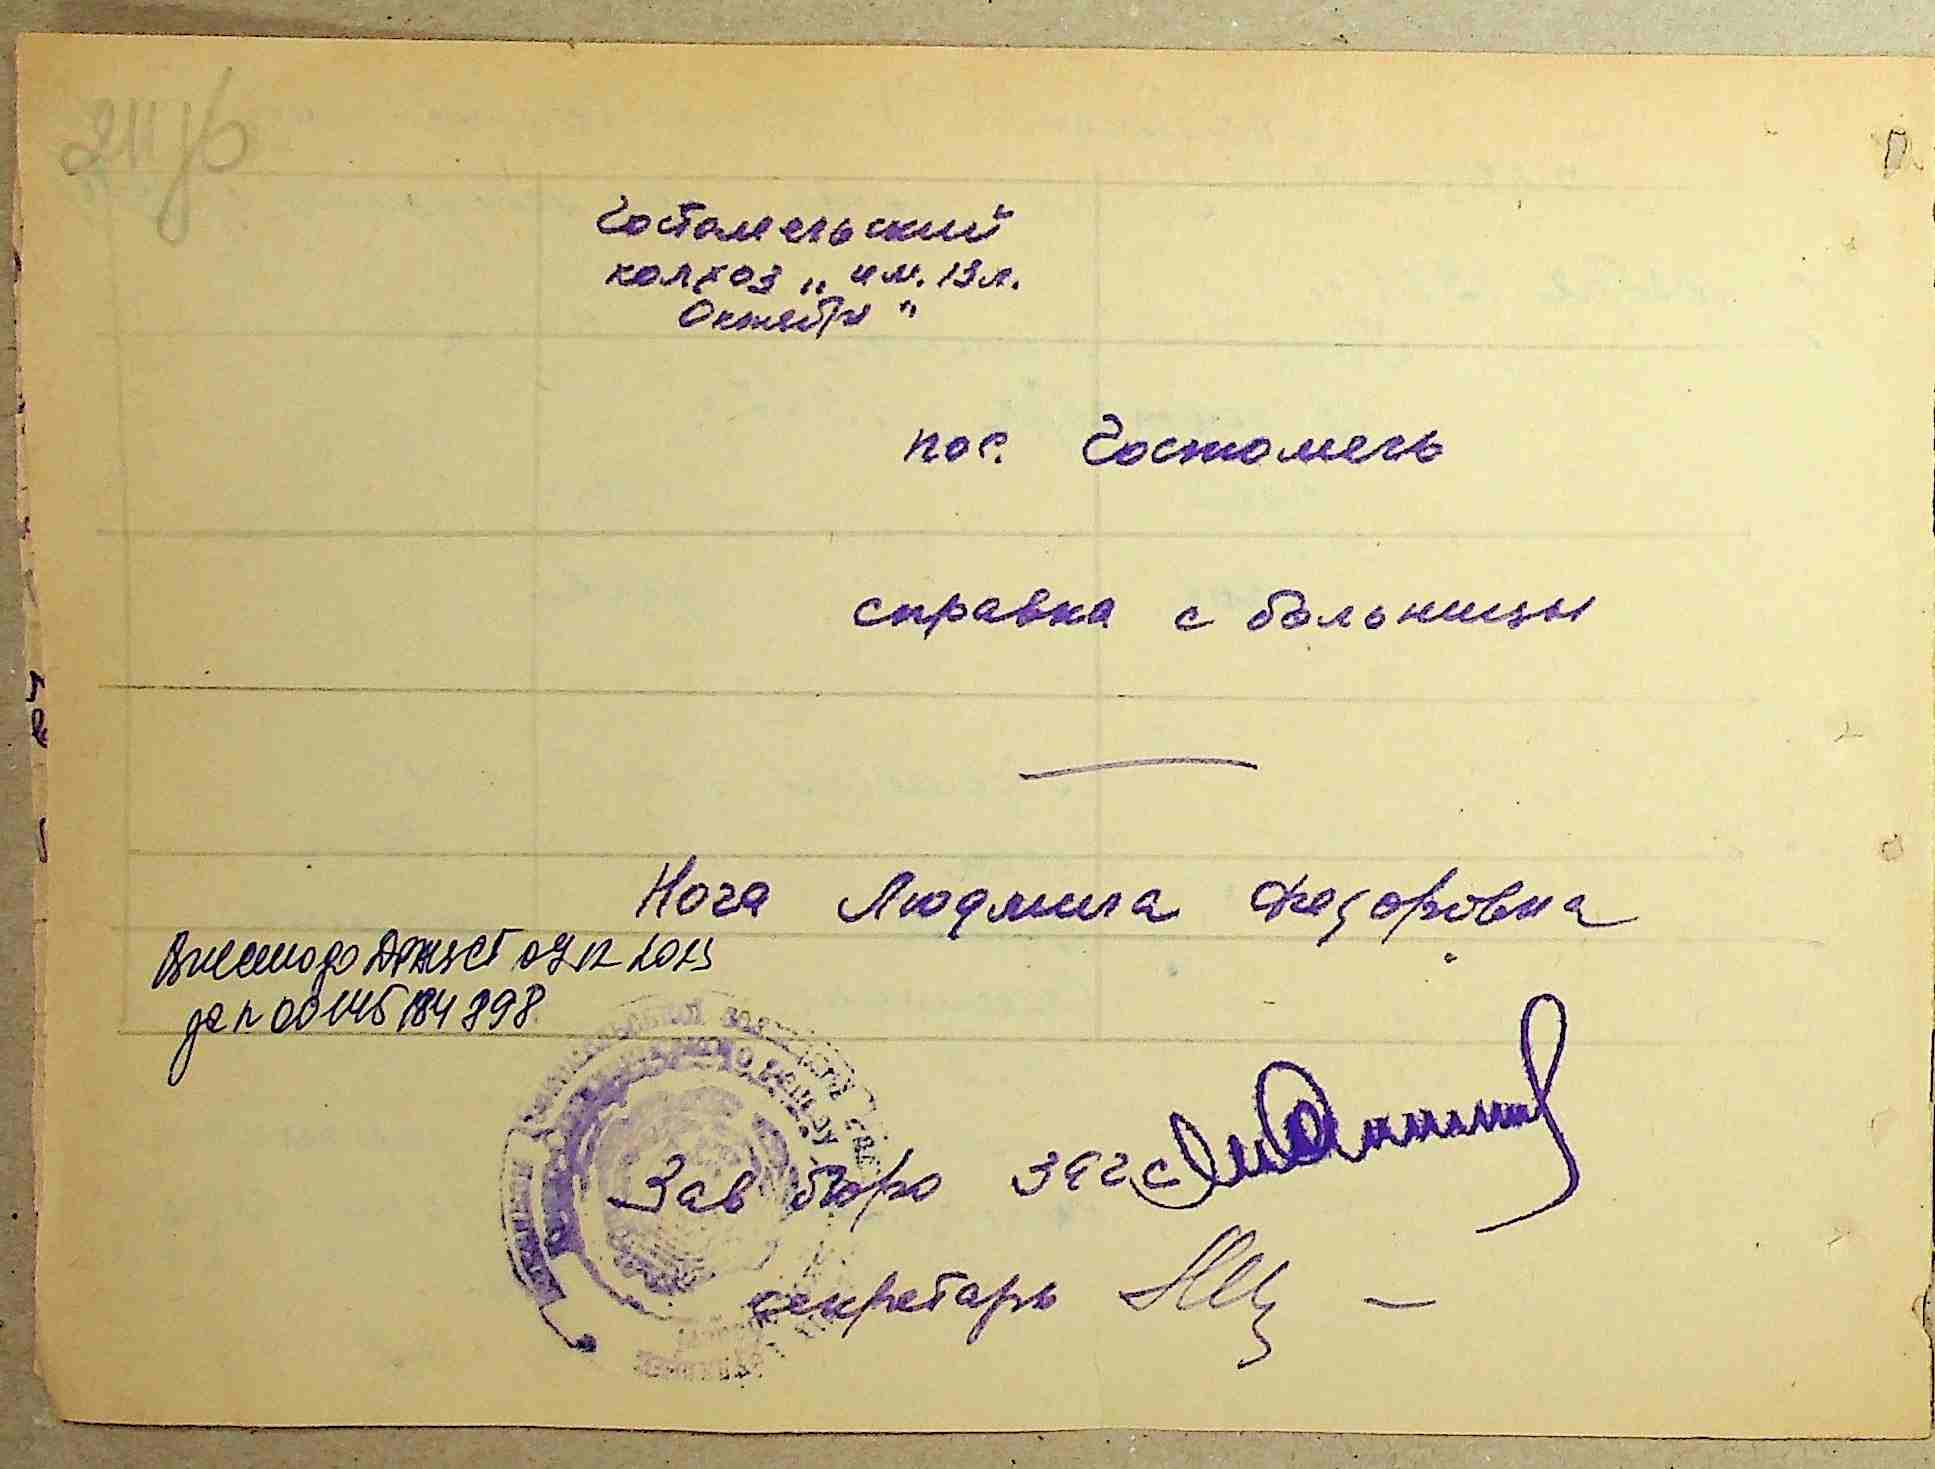 Гостомельский
колхоз „им. 13 л.
Октября"
пос. Гостомель
справка с больницы
Нога Людмила Федоровна
Внесено до ДРАЦСГ 09 12 2023
за № 00145184898
Зав бюро загс
секретарь